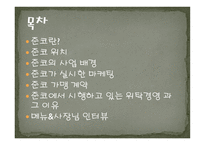 목차
준코란!
준코 위치
준코의 사업 배경
준코가 실시한 마케팅
준코 가맹 계약
준코에서 시행하고 있는 위탁경영 과
그 이유
메뉴&사장님 인터뷰